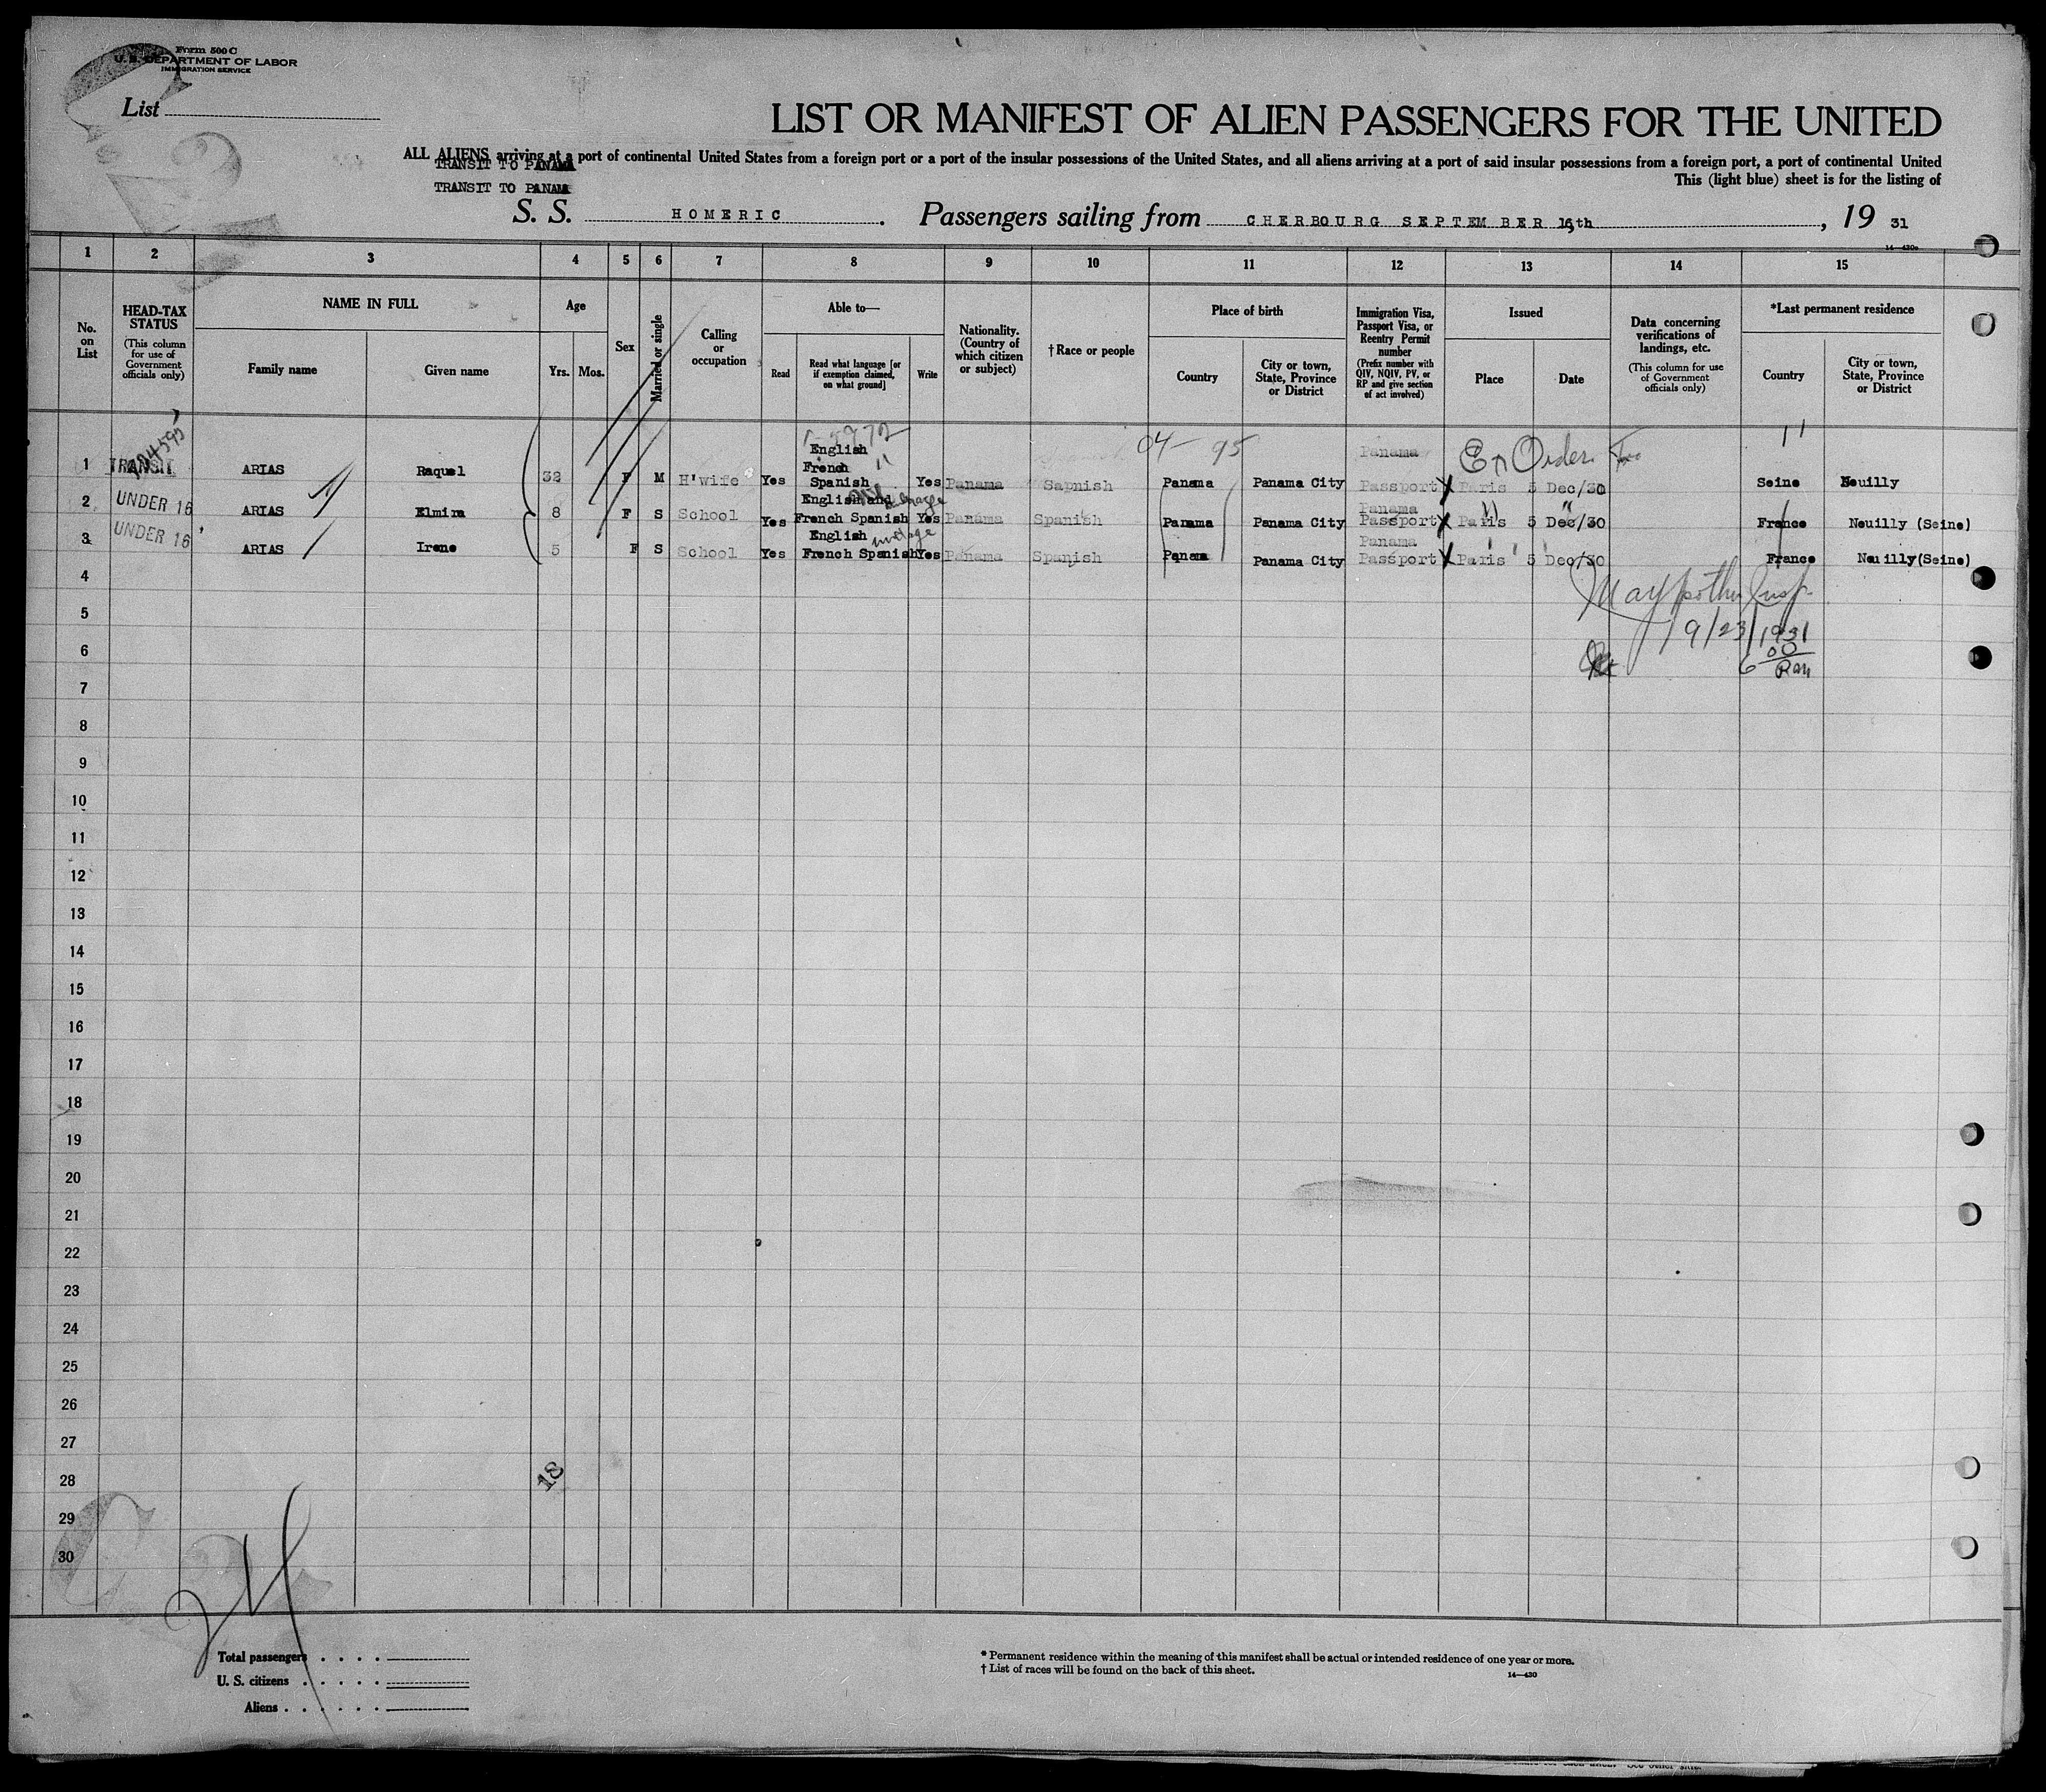 Form 500 C
U. S. DEPARTMENT OF LABOR
IMMIGRATION SERVICE
List
LIST OR MANIFEST OF ALIEN PASSENGERS FOR THE UNITED
ALL ALIENS arriving at a port of continental United States from a foreign port or a port of the insular possessions of the United States, and all aliens arriving at a port of said insular possessions from a foreign port, a port of continental United
TRANSIT TO PANAMA
This (light blue) sheet is for the listing of
TRANSIT TO PANAMA
S. S. HOMERIC. Passengers sailing from CHERBOURG SEPTEMBER 16th, 19 31
14—430a
1 2 3 4 5 6 7 8 9 10 11 12 13 14 15
No. on List
HEAD-TAX STATUS
(This column for use of Government officials only)
NAME IN FULL
Family name
Given name
Age
Yrs. Mos.
Sex
Married or single
Calling or occupation
Able to—
Read
Read what language [or if exemption claimed, on what ground]
Write
Nationality. (Country of which citizen or subject)
† Race or people
Place of birth
Country
City or town, State, Province or District
Immigration Visa, Passport Visa, or Reentry Permit number
(Prefix number with QIV, NQIV, PV, or RP and give section of act involved)
Issued
Place
Date
Data concerning verifications of landings, etc.
(This column for use of Government officials only)
*Last permanent residence
Country
City or town, State, Province or District
04— 95
1 TRANSIT ARIAS Raquel 32 F M H'wife Yes English French Spanish Yes Panama Sapnish Panama Panama City Panama Passport Paris 5 Dec/30 Seine Neuilly
2 UNDER 16 ARIAS Elmira 8 F S School Yes English and French Spanish Yes Panama Spanish Panama Panama City Panama Passport Paris 5 Dec/30 France Neuilly (Seine)
3 UNDER 16 ARIAS Irene 5 F S School Yes English French Spanish Yes Panama Spanish Panama Panama City Panama Passport Paris 5 Dec/30 France Neuilly(Seine)
4
5
9/23/1931
6
7
8
9
10
11
12
13
14
15
16
17
18
19
20
21
22
23
24
25
26
27
28
18
29
30
24
Total passengers . . . .
U. S. citizens . . . . .
Aliens . . . . . .
* Permanent residence within the meaning of this manifest shall be actual or intended residence of one year or more.
† List of races will be found on the back of this sheet.
14—430